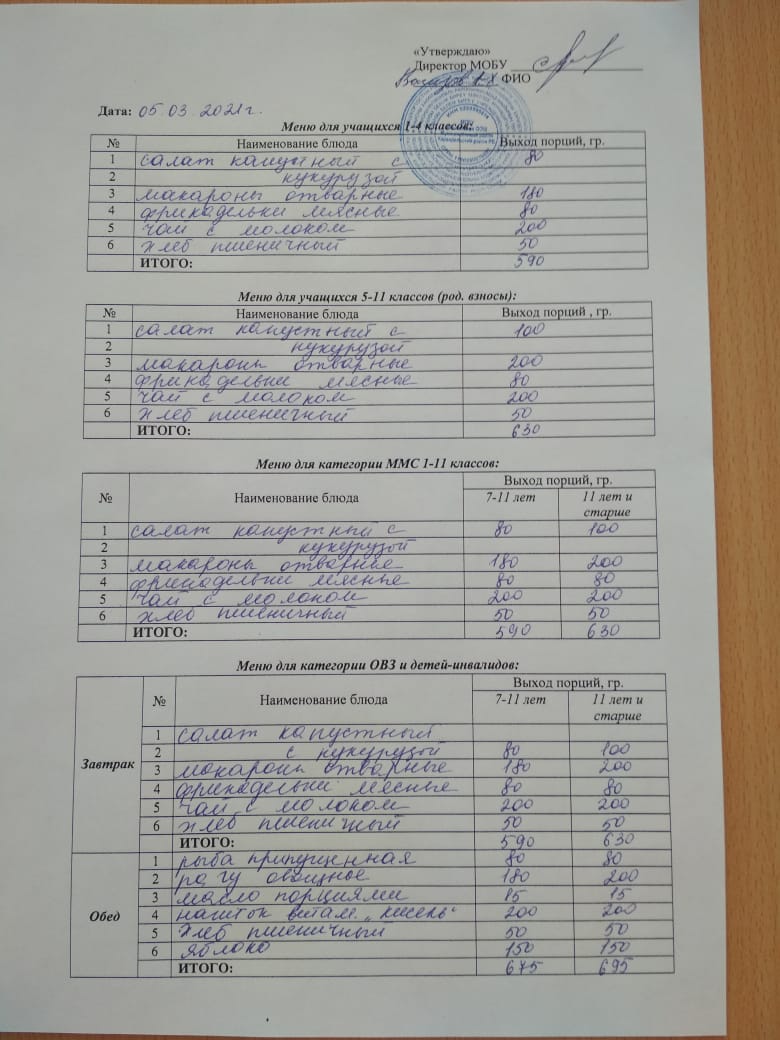 «Утверждаю»
Директор МОБУ
ФИО
Дата: 05.03.2021г.
Меню для учащихся 1-4 классов:
№ Наименование блюда Выход порций, гр.
1 салат капустный с 80
2 кукурузой
3 макароны отварные 180
4 фрикадельки мясные 80
5 чай с молоком 200
6 хлеб пшеничный 50
ИТОГО: 590
Меню для учащихся 5-11 классов (род. взносы):
№ Наименование блюда Выход порций , гр.
1 салат капустный с 100
2 кукурузой
3 макароны отварные 200
4 фрикадельки мясные 80
5 чай с молоком 200
6 хлеб пшеничный 50
ИТОГО: 630
Меню для категории ММС 1-11 классов:
№ Наименование блюда Выход порций, гр.
7-11 лет 11 лет и старше
1 салат капустный с 80 100
2 кукурузой
3 макароны отварные 180 200
4 фрикадельки мясные 80 80
5 чай с молоком 200 200
6 хлеб пшеничный 50 50
ИТОГО: 590 630
Меню для категории ОВЗ и детей-инвалидов:
№ Наименование блюда Выход порций, гр.
7-11 лет 11 лет и старше
Завтрак
1 салат капустный
2 с кукурузой 80 100
3 макароны отварные 180 200
4 фрикадельки мясные 80 80
5 чай с молоком 200 200
6 хлеб пшеничный 50 50
ИТОГО: 590 630
Обед
1 рыба припущенная 80 80
2 рагу овощное 180 200
3 масло порциями 15 15
4 напиток витам. „кисель“ 200 200
5 хлеб пшеничный 50 50
6 яблоко 150 150
ИТОГО: 675 695